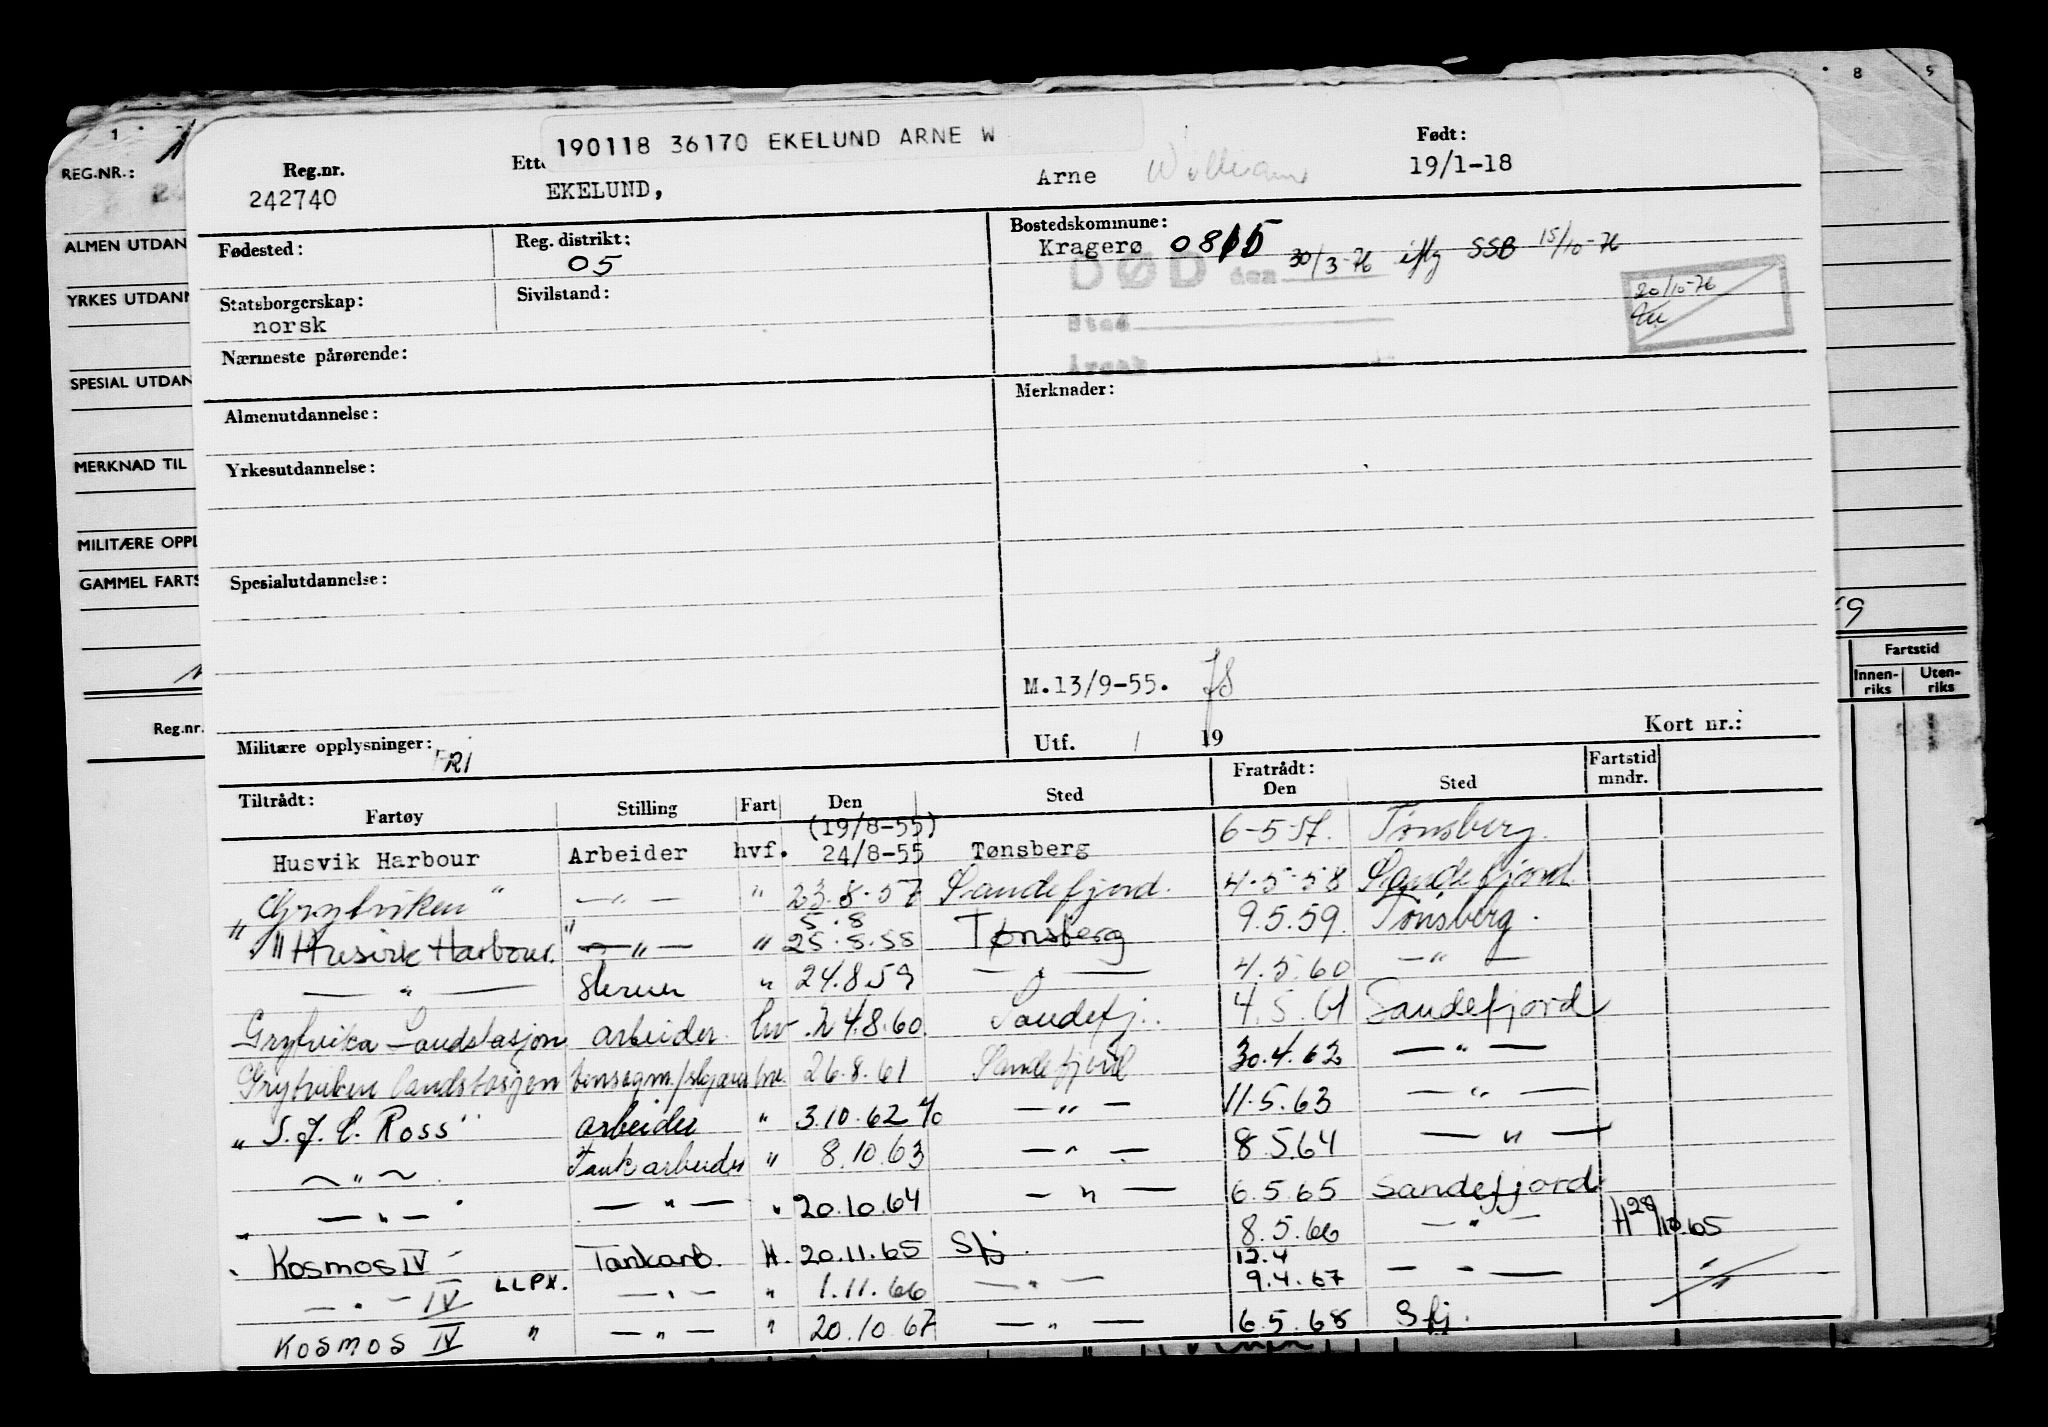 190118 36170 EKELUND ARNE W
Reg.nr. Født:
242740 EKELUND, Arne William 19/1-18
Fødested: Reg. distrikt: Bostedskommune:
05 Kragerø 0815
DØD den 30/3-76 iflg SSB 15/10-76
Statsborgerskap: Sivilstand: Sted 20/10-76
norsk
Nærmeste pårørende: Årsak
Almenutdannelse: Merknader:
Yrkesutdannelse:
Spesialutdannelse:
M.13/9-55.
Militære opplysninger: FRI Utf. / 19 Kort nr.:
Tiltrådt: Fratrådt: Fartstid
Fartøy Stilling Fart Den Sted Den Sted mndr.
(19/8-55)
Husvik Harbour Arbeider hvf. 24/8-55 Tønsberg 6-5-57. Tønsberg.
"Grytviken" —"— " 23.8.57 Sandefjord. 4.5.58 Sandefjord
5.8
" Husvik Harbour. —"— " 25.8.58 Tønsberg 9.5.59. Tønsberg.
—"— " 24.8.59 —"— 4.5.60 —"—
Grytvika Landstasjon arbeider hv 24.8.60. Sandefj. 4.5.61 Sandefjord
Grytviken landstasjon hv. 26.8.61 Sandefjord 30.4.62 —"—
"S.J.C. Ross" arbeider " 3.10.62 —"— 11.5.63 —"—
—"— Tankarbeider " 8.10.63 —"— 8.5.64 —"—
—"— —"— " 20.10.64 —"— 6.5.65 Sandefjord
Kosmos IV Tankarb. H. 20.11.65 Sfj. 8.5.66 —"— H 28/10.65
12.4
—"— IV LLPX. —"— " 1.11.66 —"— 9.4.67 —"— "
Kosmos IV " —"— " 20.10.67 —"— 6.5.68 Sfj.
1
8 5
REG.NR.:
ALMEN UTDAN
YRKES UTDANN
SPESIAL UTDAN
MERKNAD TIL
MILITÆRE OPPL
GAMMEL FARTS
Reg.nr.
9
Fartstid
Innen-riks Uten-riks